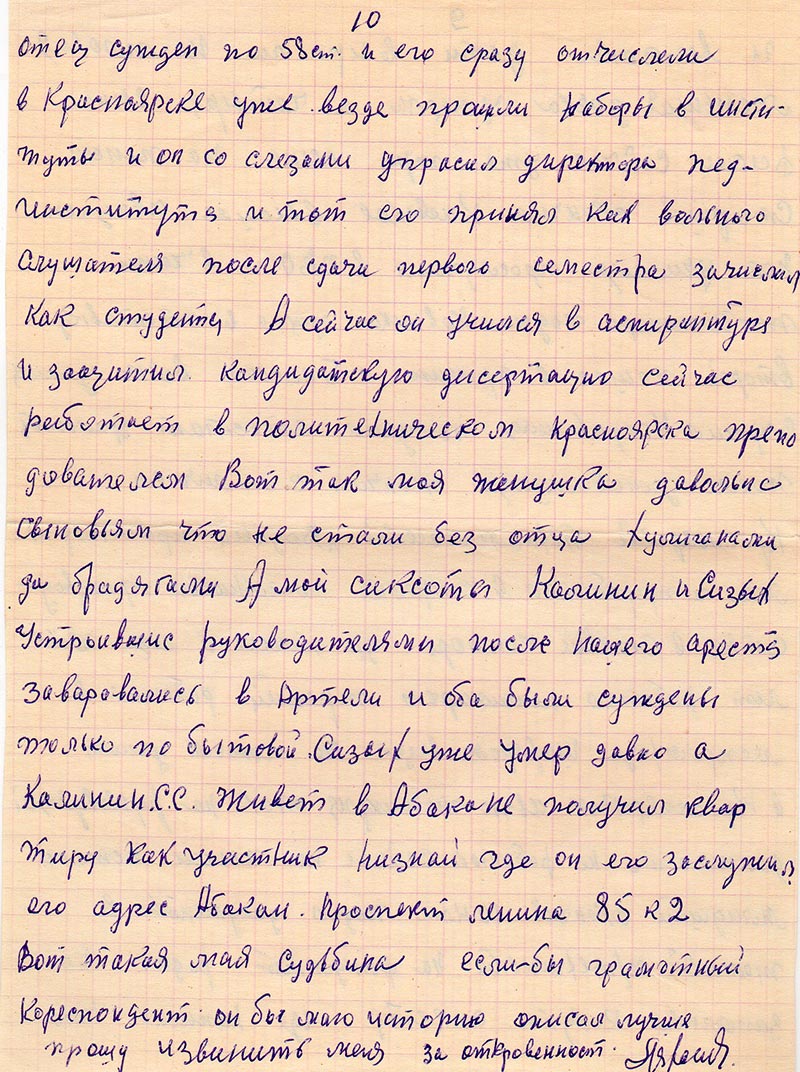 10
отец сужден по 58 ст. и его сразу отчислели
в Красноярске уже везде прошли наборы в инсти-
туты и он со слезами упрасил директора пед-
института и тот его принял как вольного
слушателя после сдачи первого семестра зачислил
как студента А сейчас он учился в аспирантуре
и защитил кандидатскую дисертацию сейчас
работает в политехническом Красноярска препо
дователем Вот так моя женушка давольна
сыновьям что не стали без отца хулиганами
да брадягами А мои сиксоты Калинин и Сизых
Устроившис руководителями после нашего ареста
Заваравались в Артели и оба были суждены
только по бытовой. Сизых уже умер давно а
Калинин.С.С. живет в Абакане получил квар
тиру как участник низнай где он его заслужил
его адрес Абакан. проспект ленина 85 к 2
Вот такая мая судьбина если-бы граматный
Кореспондент он бы маю историю описал лучше
прошу извинить меня за откровенност.